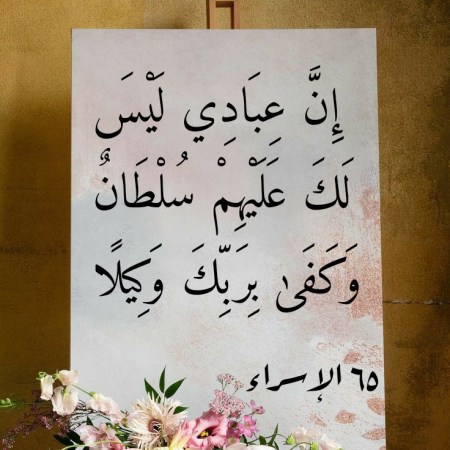 إِنَّ عِبَادِي لَيْسَ
لَكَ عَلَيْهِمْ سُلْطَانٌ
وَكَفَىٰ بِرَبِّكَ وَكِيلًا
٦٥ الإسراء